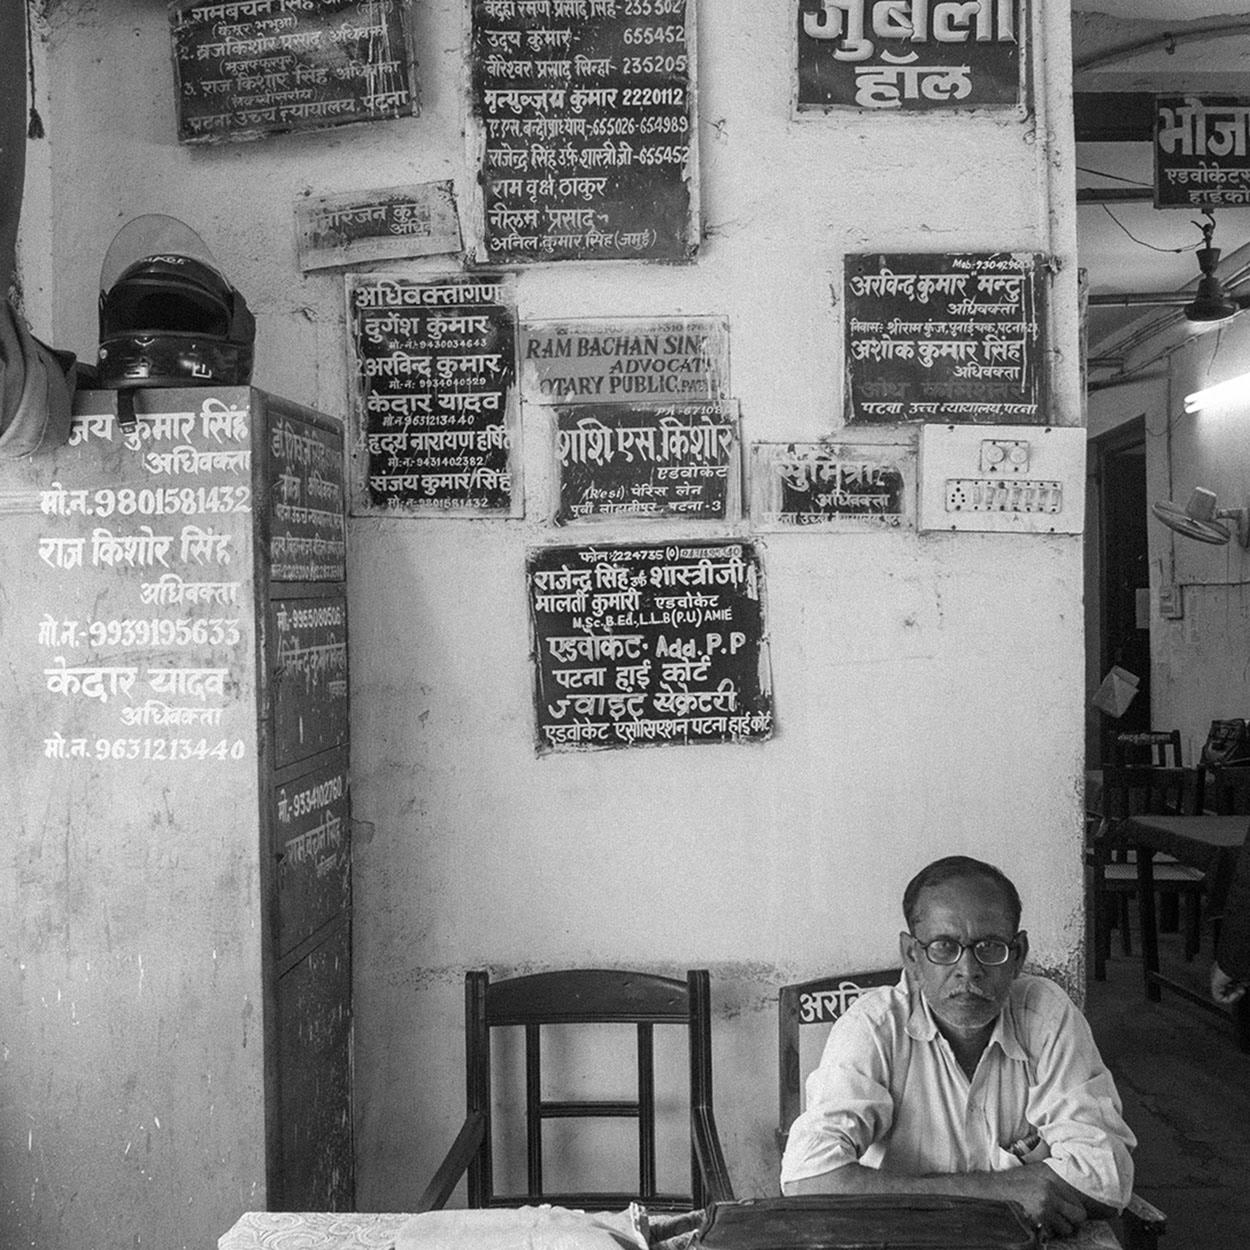 1. रामबचन सिंह
2. ब्रजकिशोर प्रसाद अधिवक्ता
(मुजफ्फरपुर)
3. राज किशोर सिंह अधिवक्ता
पटना उच्च न्यायालय, पटना
प्रसाद सिंह-235502
उदय कुमार- 655452
बीरेश्वर प्रसाद सिन्हा-235205
मृत्युञ्जय कुमार 2220112
ए.एस.बन्दोपाध्याय-655026-654989
राजेन्द्र सिंह उर्फ शास्त्रीजी-655452
राम वृक्ष ठाकुर
नीलम प्रसाद-
अनिल कुमार सिंह (जमुई)
जुबली
हॉल
भोज
एडवोकेटस
हाईको
अधिवक्तागण
दुर्गेश कुमार
मो.नं.-9430034643
अरविन्द कुमार
मो.नं. 9934040529
केदार यादव
मो.नं.9631213440
हृदय नारायण हर्षि
मो.नं.-9431402382
संजय कुमार सिंह
मो.नं.-9801581432
RAM BACHAN SIN
ADVOCAT
OTARY PUBLIC.
शशि एस. किशोर
एडवोकेट
(Resi) पेरिस लेन
पूर्वी लोहानीपुर, पटना-3
सुमित्रा
अधिवक्ता
अरविन्द कुमार "मन्टु
अधिवक्ता
निवास: श्रीराम कुंज, पुनाईचक, पटना-23
अशोक कुमार सिंह
अधिवक्ता
पटना उच्च न्यायालय, पटना
फोन:224735 (0)
राजेन्द्र सिंह उर्फ शास्त्रीजी
मालती कुमारी एडवोकेट
M.Sc.B.Ed.,L.L.B(P.U) AMIE
एडवोकेट- Add. P.P
पटना हाई कोर्ट
ज्वाइंट सेक्रेटरी
एडवोकेट एसोसिएशन पटना हाई कोर्ट
जय कुमार सिंह
अधिवक्ता
मो.न.9801581432
राज किशोर सिंह
अधिवक्ता
मो.न.-9939195633
केदार यादव
अधिवक्ता
मो.न.9631213440
मो.-9955080506
मो.-9334102760
अरवि